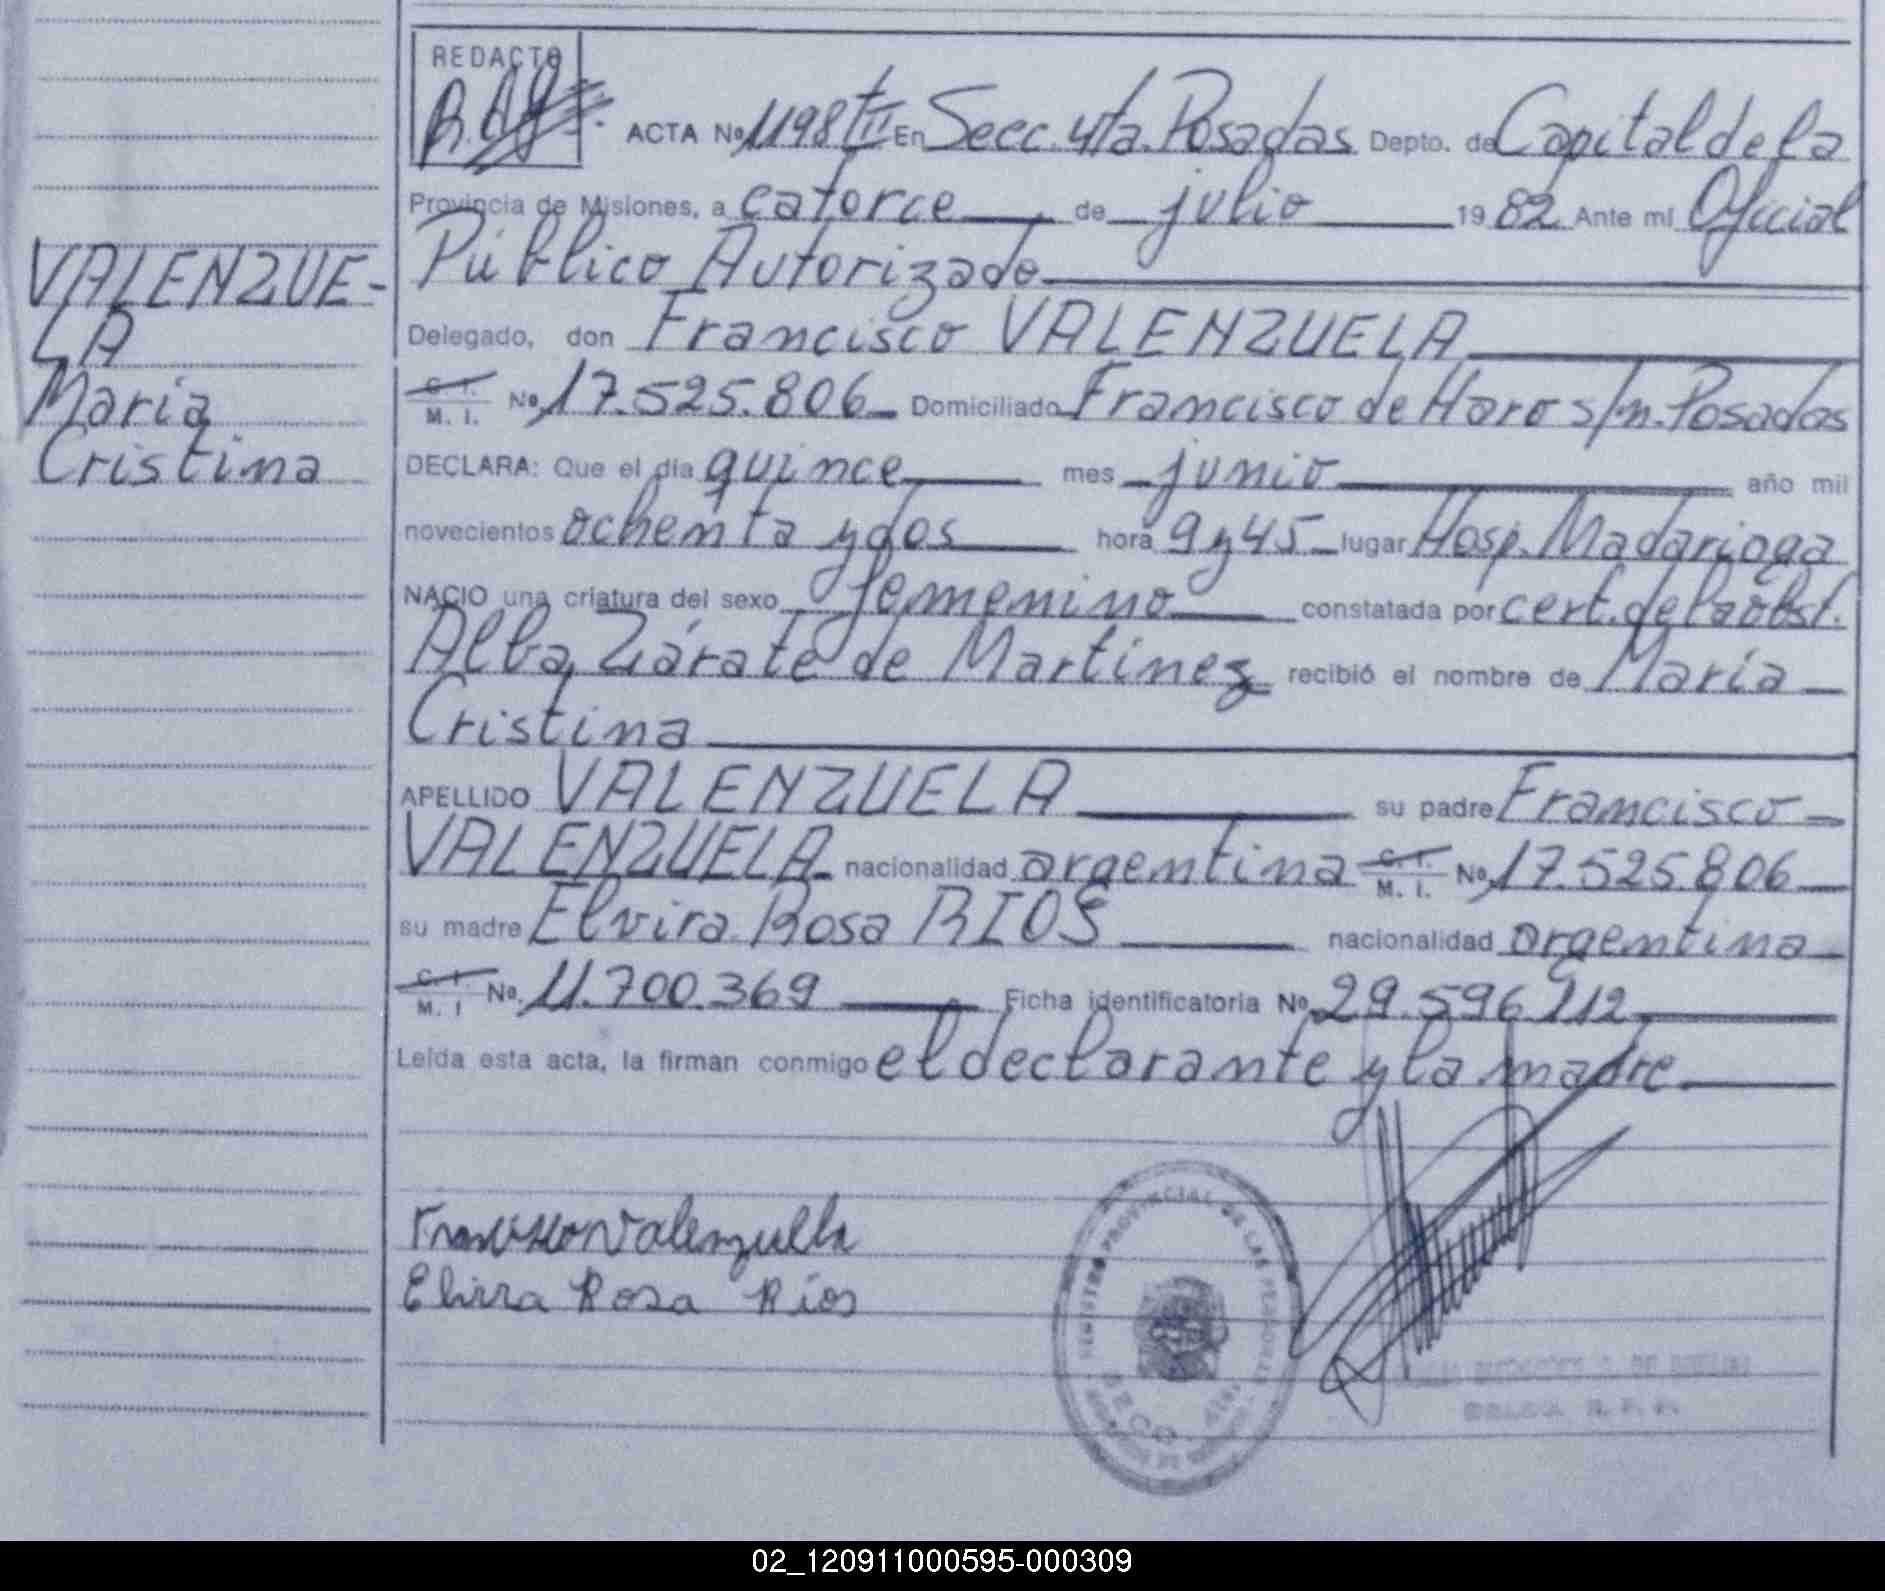 VALENZUE-
LA
María
Cristina
REDACTO
ACTA Nº 1198 tII En Secc. 4ta. Posadas Depto. de Capital de la
Provincia de Misiones, a catorce de julio 1982 Ante mí Oficial
Público Autorizado
Delegado, don Francisco VALENZUELA
C. I. M. I. Nº 17.525.806 Domiciliado Francisco de Haro s/n. Posadas
DECLARA: Que el día quince mes junio año mil
novecientos ochenta y dos hora 9 y 45 lugar Hosp. Madariaga
NACIO una criatura del sexo femenino constatada por cert. de la obst.
Alba Zárate de Martinez recibió el nombre de María
Cristina
APELLIDO VALENZUELA su padre Francisco
VALENZUELA nacionalidad argentina C. I. M. I. Nº 17.525.806
su madre Elvira Rosa RIOS nacionalidad argentina
C. I. M. I Nº 11.700.369 Ficha identificatoria Nº 29.596.112
Leída esta acta, la firman conmigo el declarante y la madre
Francisco Valenzuella
Elvira Rosa Ríos
PROVINCIAL DE LAS PERSONAS
02_120911000595-000309